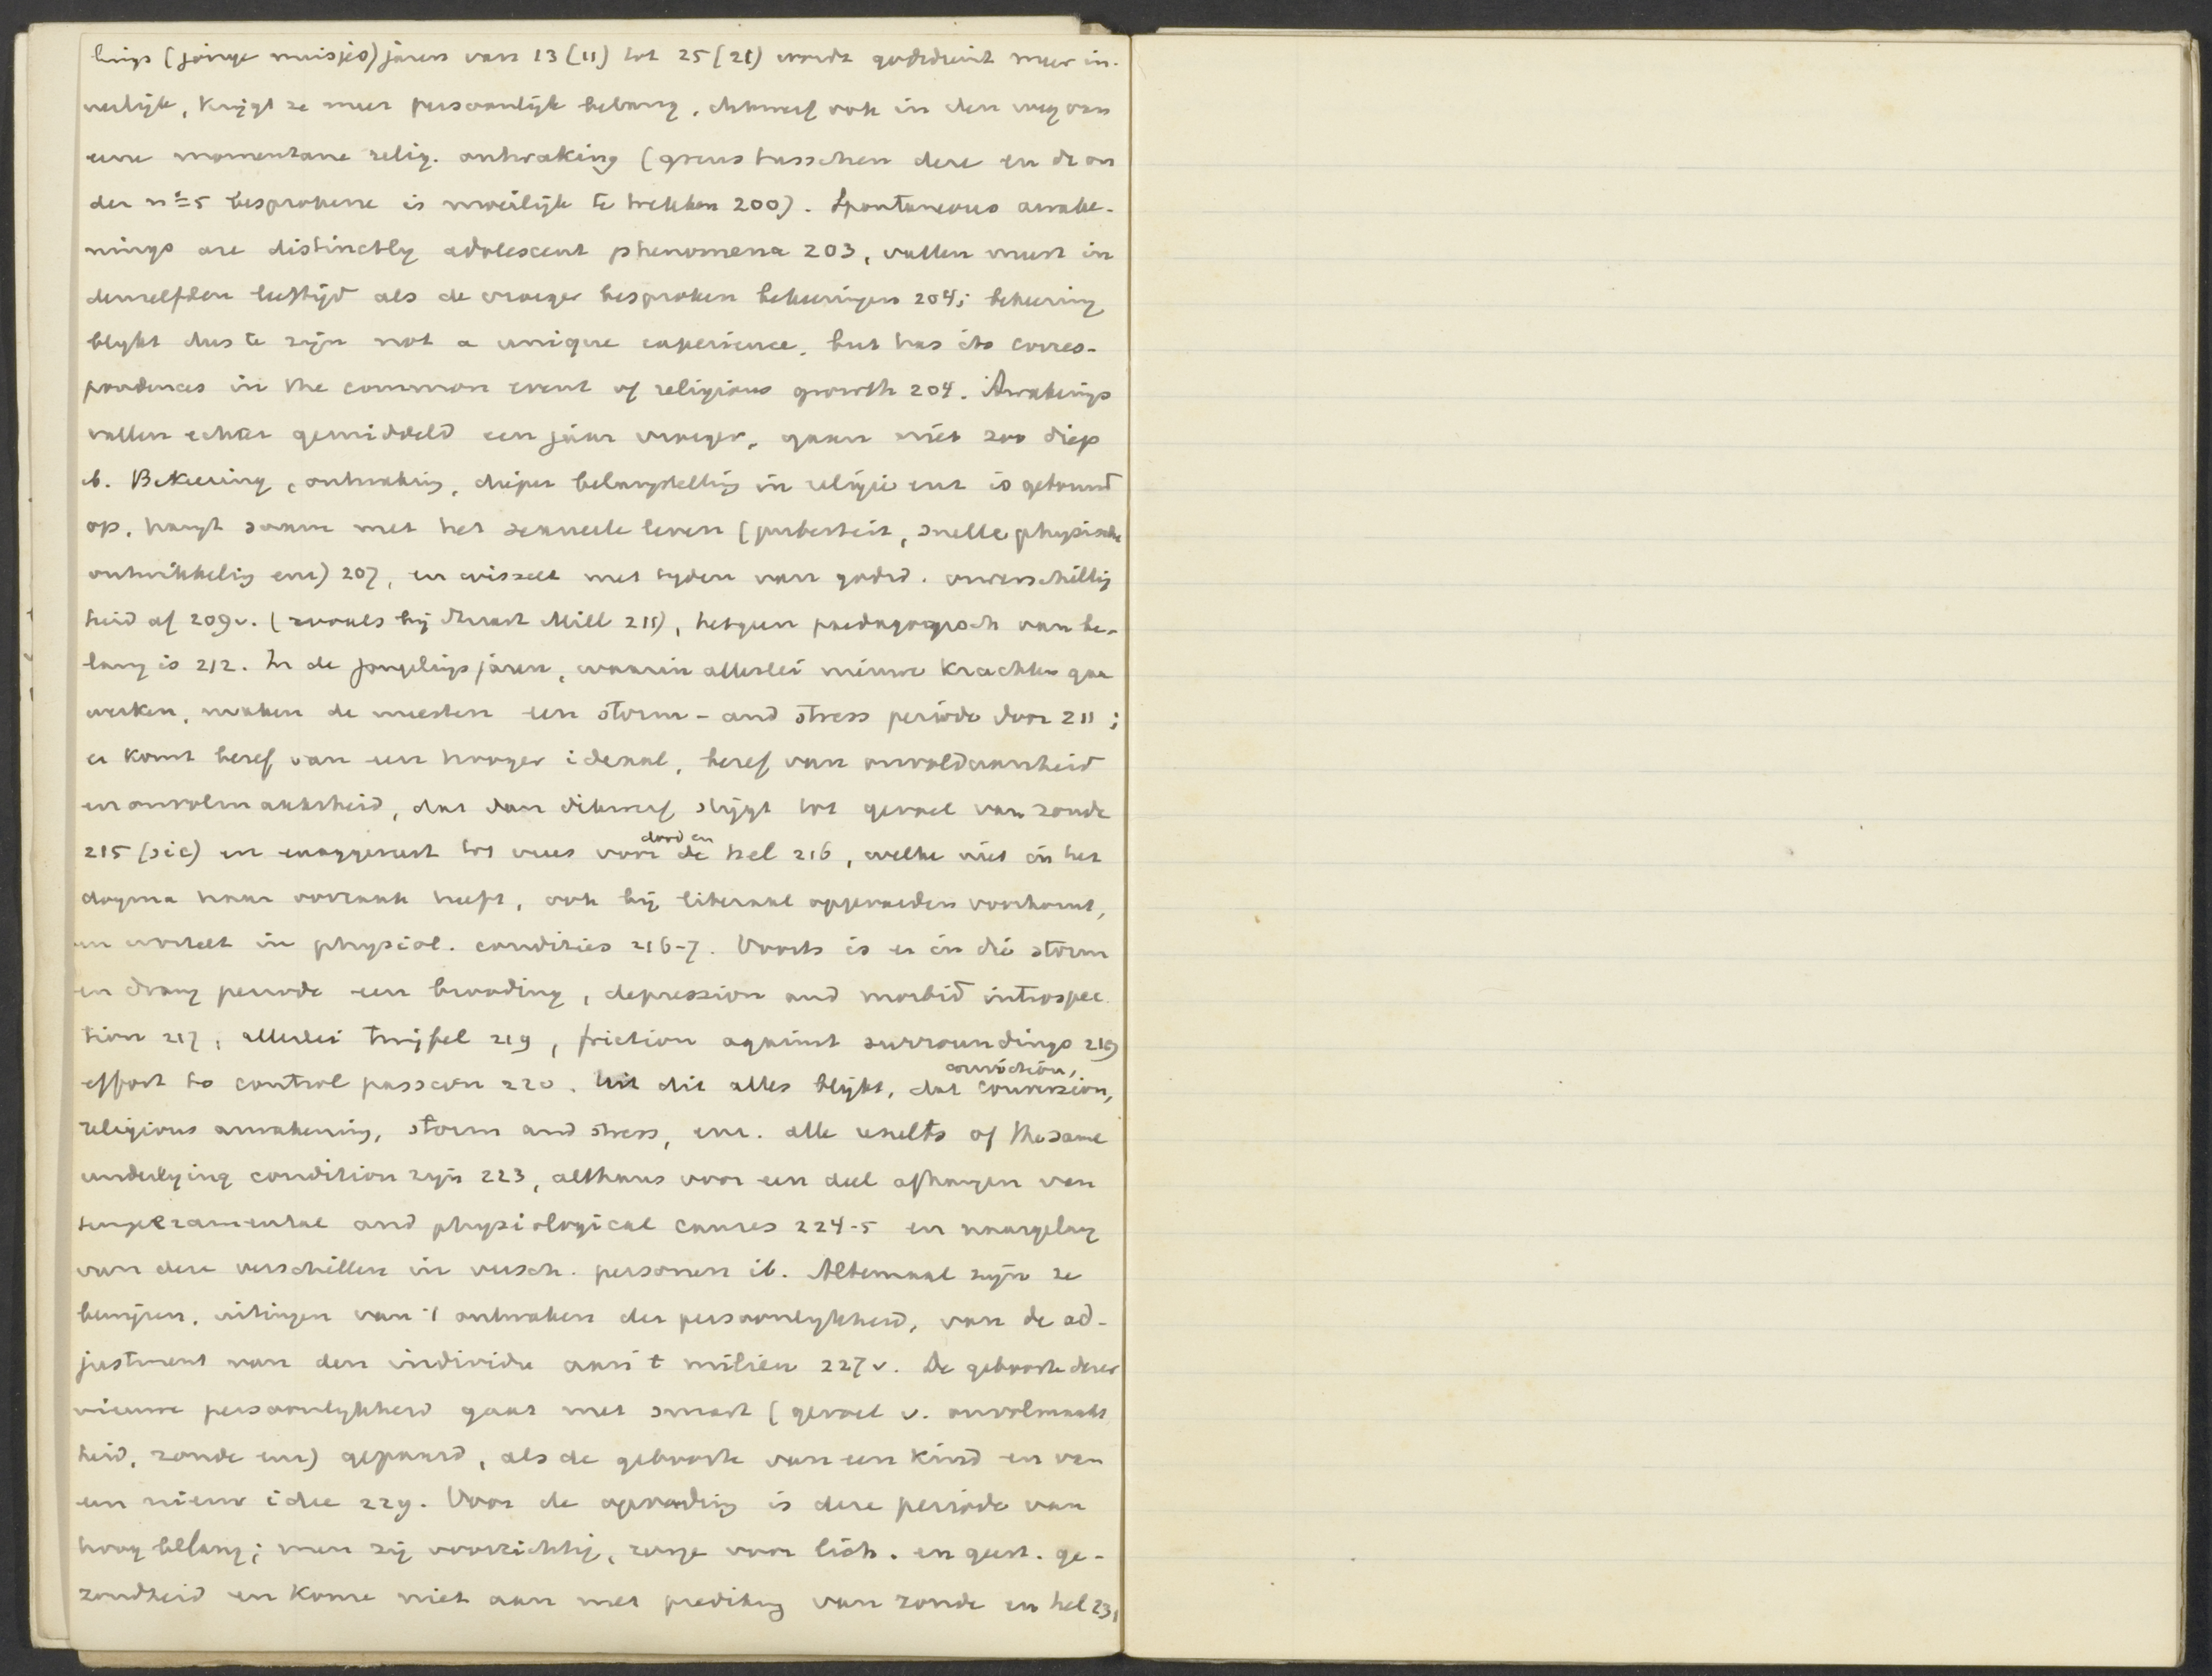 lings (jonge meisjes) jaren van 13 (11) tot 25 (21) wordt godsdienst meer in-
nerlijk, krijgt ze meer persoonlijk belang, dikwerf ook in den weg van
eene momentane relig. ontwaking (grens tusschen deze en de on
der no 5 besprokene is moeilijk te trekken 200). Spontaneous awake-
nings are distinctly adolescent phenomena 203, vallen meest in
denzelfden leeftijd als de vroeger besproken bekeeringen 204; bekeering
blijkt dus te zijn not a unique experience, but has its corres-
pondences in the common event of religious growth 204. Awakenings
vallen echter gemiddeld een jaar vroeger, gaan niet zoo diep
ib. Bekeering, ontwaking, dieper belangstelling in religie enz is gebouwd
op, hangt saam met het sexueele leven (puberteit, snelle physische
ontwikkeling enz) 207, en wisselt met tyden van godsd. onverschillig
heid af 209v. (zooals bij Stuart Mill 211), hetgeen paedagogisch van be-
lang is 212. In de jongelingsjaren, waarin allerlei nieuwe krachten gaan
werken, maken de meesten een storm- and stress periode door 211;
er komt besef van een hooger ideaal, besef van onvoldaanheid
en onvolmaaktheid, dat dan dikwerf stijgt tot gevoel van zonde
215 (sic) en exaggereert tot vrees voor dood en de hel 216, welke niet in het
dogma haar oorzaak heeft, ook bij liberaal opgevoeden voorkomt,
en wortelt in physiol. condities 216-7. Voorts is er in die storm
en drang periode een brooding, depression and morbid introspec
tion 217, allerlei twijfel 219, friction against surroundings 219
effort to control passion 220. Uit dit alles blijkt, dat conviction, conversion,
religious awakening, storm and stress, enz. alle results of the same
underlying condition zyn 223, althans voor een deel afhangen van
temperamental and physiological causes 224-5 en naargelang
van deze verschillen in versch. personen ib. Altemaal zijn ze
bewijzen, uitingen van 't ontwaken der persoonlykheid, van de ad-
justment van den individu aan 't milieu 227v. De geboorte dezer
nieuwe persoonlykheid gaat met smart (gevoel v. onvolmaakt
heid, zonde enz) gepaard, als de geboorte van een kind en van
een nieuw idee 229. Voor de opvoeding is deze periode van
hoog belang; men zij voorzichtig, zorge voor lich. en geest. ge-
zondheid en kome niet aan met prediking van zonde en hel 231